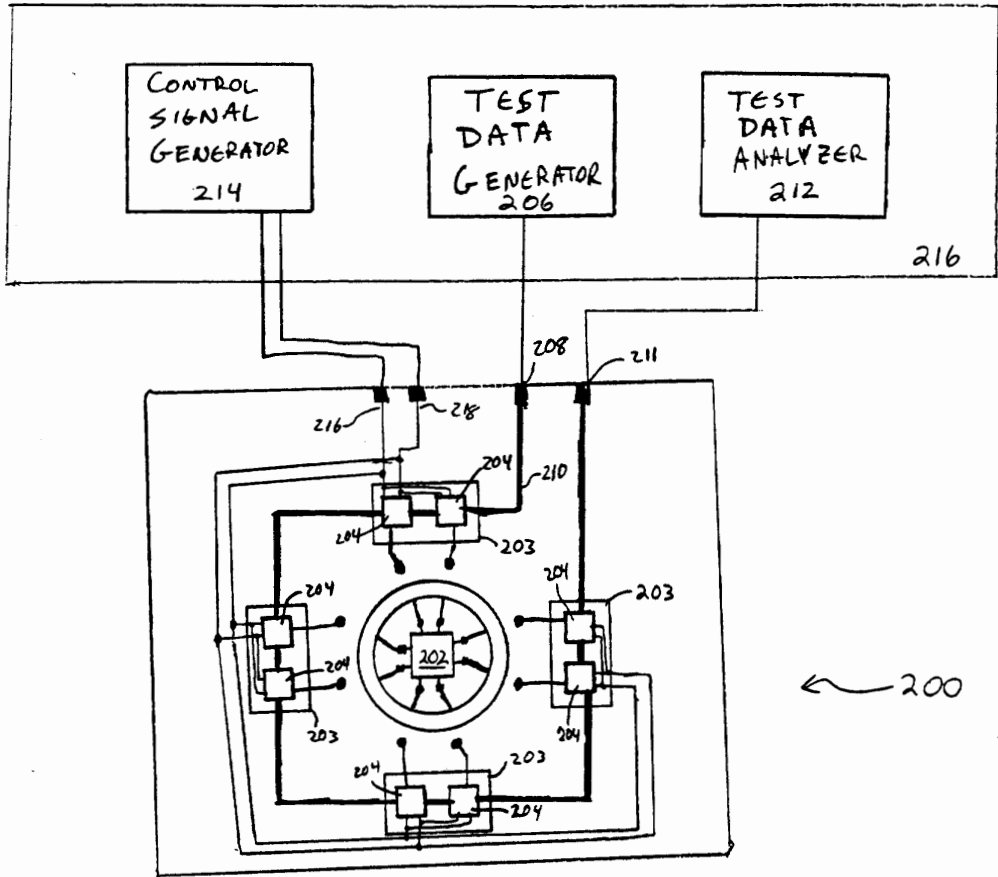 CONTROL
SIGNAL
GENERATOR
214
TEST
DATA
GENERATOR
206
TEST
DATA
ANALYZER
212
216
208
211
216
218
204
210
204
203
204
204
203
204
203
204
202
200
204
203
204
204